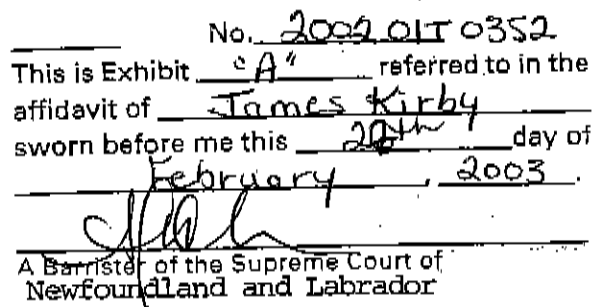 No. 2002 01T 0352
This is Exhibit "A" referred to in the
affidavit of James Kirby
sworn before me this day of
February, 2003.
A Barrister of the Supreme Court of
Newfoundland and Labrador